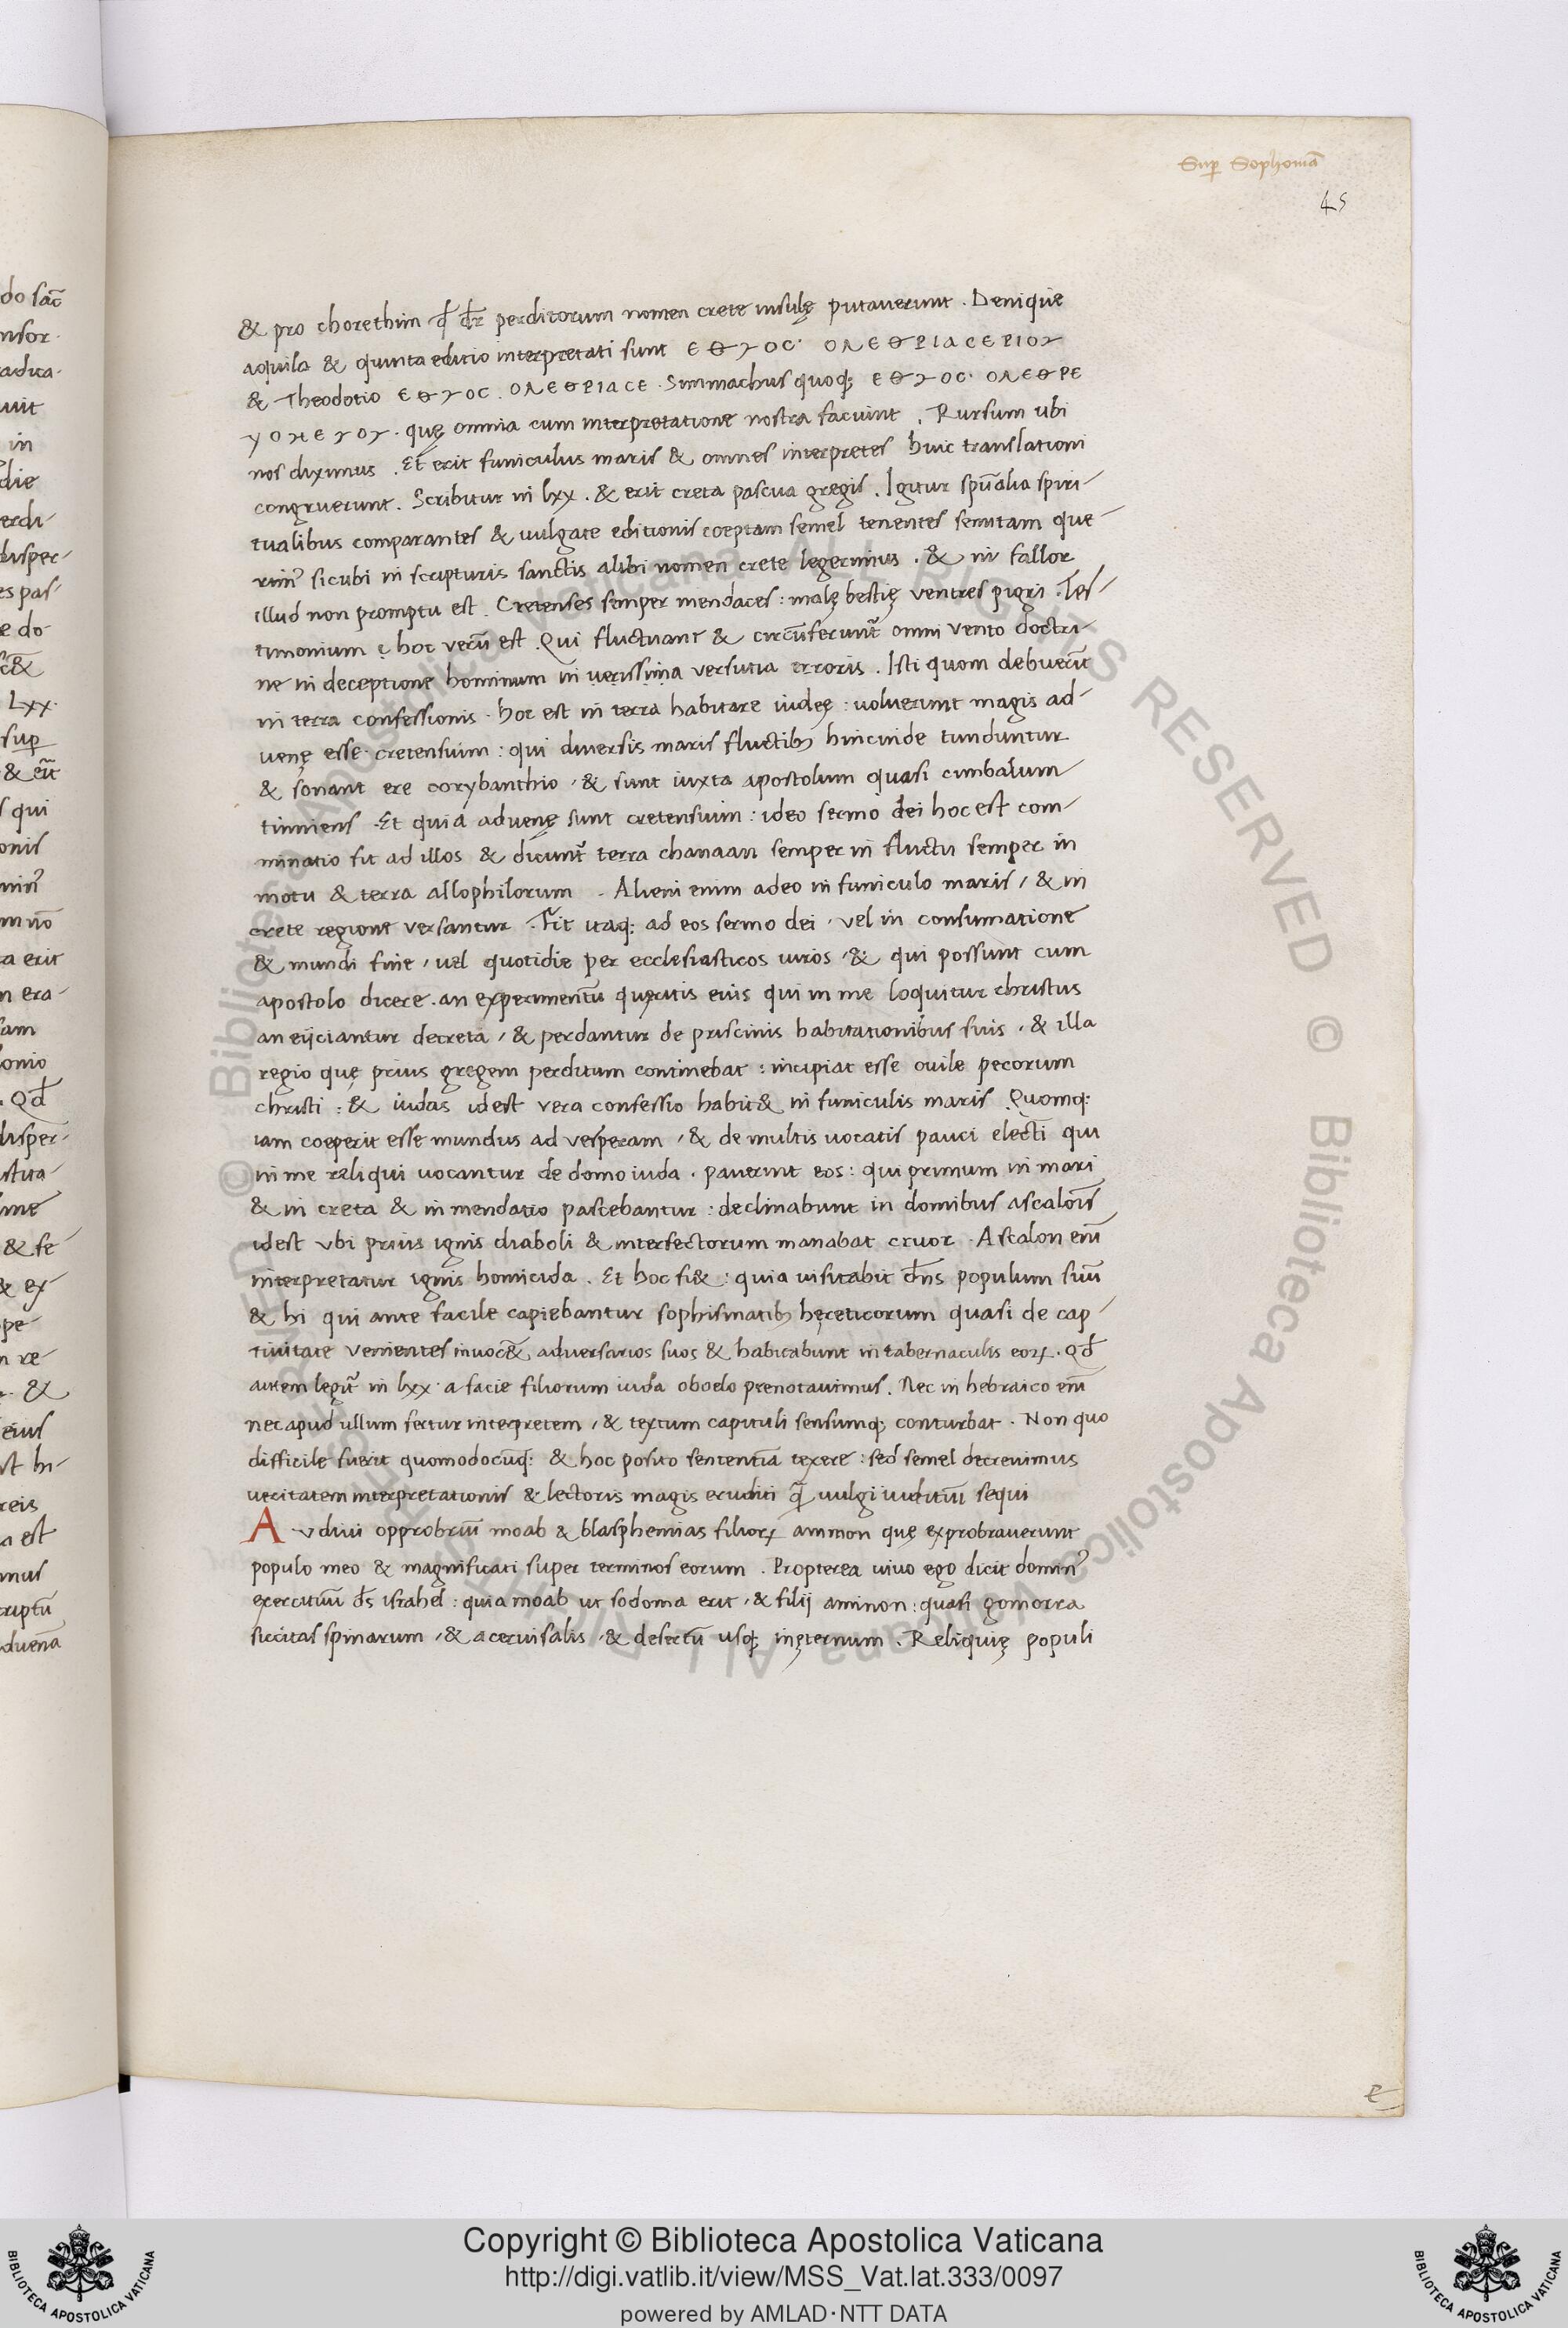 Sup̄ Sophoniā
45
& pro chorethim q̄d dr̄ perditorum nomen crete insulę putauerunt . Denique
aquila & quinta editio interpretati sunt ЄΘΥΟC· ΟΛЄΘΡΙΑCЄΡΙΟΥ
& Theodotio ЄΘΥΟC . ΟΛЄΘΡΙΑCЄ . Simmachus quoq; ЄΘΥΟC· ΟΛЄΘΡЄ
ΥΟΗЄΥΟΥ . quę omnia cum interpretatione nostra faciunt . Rursum ubi
nos diximus . Et erit funiculus maris & omnes interpretes huic translationi
congruerunt . Scribitur in lxx . & erit creta pascua gregis . Igitur spūalia spiri-
tualibus comparantes & uulgate editionis coeptam semel tenentes semitam que-
rimꝰ sicubi in scripturis sanctis alibi nomen crete legerimus . & ni fallor
illud non promptu est . Cretenses semper mendaces : malę bestię ventres pigri . Tes-
timonium ę hoc verū est . Qui fluctuant & circūferunt̄ omni vento doctri-
ne in deceptione hominum in uerissima versutia erroris . Isti quom debuerūt
in terra confessionis . hoc est in terra habitare iudeę : uoluerunt magis ad-
uenę esse cretensium : qui diuersis maris fluctib; hincinde tunduntur
& sonant ere corybanthio , & sunt iuxta apostolum quasi cimbalum
tinniens . Et quia aduenę sunt cretensium : ideo sermo dei hoc est com-
minatio fit ad illos & dicunt̄ terra chanaan semper in fluctu semper in
motu & terra allophilorum . Alieni enim a deo in funiculo maris , & in
crete regione versantur . Fit itaq; ad eos sermo dei , vel in consumatione
& mundi fine , uel quotidie per ecclesiasticos uiros , & qui possunt cum
apostolo dicere . an experimentū queritis eius qui in me loquitur christus
an eijciantur de creta , & perdantur de priscinis habitationibus suis , & illa
regio quę prius gregem perditum continebat : incipiat esse ouile pecorum
christi : & iudas idest vera confessio habit& in funiculis maris . Quomq;
iam coeperit esse mundus ad vesperam , & de multis uocatis pauci electi qui
in me reliqui uocantur de domo iuda . pauerint eos : qui primum in mari
& in creta & in mendatio pascebantur : declinabunt in domibus ascalonīs
idest vbi prius ignis diaboli & interfectorum manabat cruor . Ascalon enī
interpretatur ignis homicida . Et hoc fi& : quia uisitabit dn̄s populum suū
& hi qui ante facile capiebantur sophismatib; hęreticorum quasi de cap-
tiuitate venientes inuoc& aduersarios suos & habitabunt in tabernaculis eoꝝ . Qd̄
autem legit̄ in lxx a facie filiorum iuda oboelo prenotauimus . Nec in hebraico enī
nec apud ullum fertur interpretem , & textum capituli sensumq; conturbat . Non quo
difficile fuerit quomodocūq; & hoc posito sententiā texere : sed semel decreuimus
ueritatem interpretationis & lectoris magis eruditi q̄ uulgi iuditiū sequi
Avdiui opprobriū moab & blasphemias filioꝝ ammon quę exprobrauerunt
populo meo & magnificati super terminos eorum . Propterea uiuo ego dicit dominꝰ
exercituū ds̄ israhel : quia moab ut sodoma erit , & filij ammon : quasi gomorra
siccitas spinarum , & acerui salis , & desertū usq; in ęternum . Reliquię populi
© Biblioteca Apostolica Vaticana ALL RIGHTS RESERVED
Copyright © Biblioteca Apostolica Vaticana
http://digi.vatlib.it/view/MSS_Vat.lat.333/0097
powered by AMLAD·NTT DATA
BIBLIOTECA APOSTOLICA VATICANA
BIBLIOTECA APOSTOLICA VATICANA